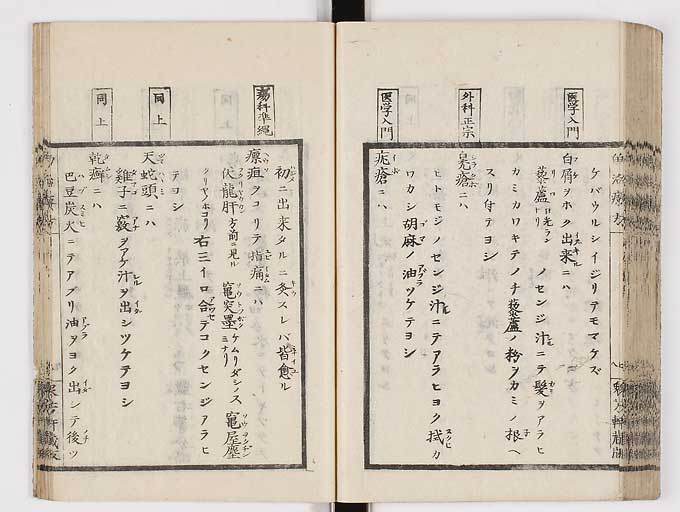 医学入門
外科正宗
医学入門
ケバウルシイジリテモマケズ
白屑ヲホク出来ニハ
藜蘆 ノセンジ汁ニテ髪ヲアラヒ
カミカワキテノチ藜蘆ノ粉ヲカミノ根ヘ
スリ付テヨシ
瘡ニハ
ヒトモジノセンジ汁ニテアラヒヨク拭カ
ワカシ胡麻ノ油ツケテヨシ
瘡ニハ
瘍科準縄
同上
同上
初ニ出来タルニ灸スレバ皆愈ル
瘭疽ヲコリテ指痛ニハ
伏龍肝 方前ニ見ル 竈突墨 ケムリダシノスミナリ 竈屋塵
右三イロ合テコクセンジアラヒ
テヨシ
天蛇頭ニハ
雞子ニ竅ヲアケ汁ヲ出シツケテヨシ
乾癬ニハ
巴豆炭火ニテアブリ油ヲヨク出シテ後ツ